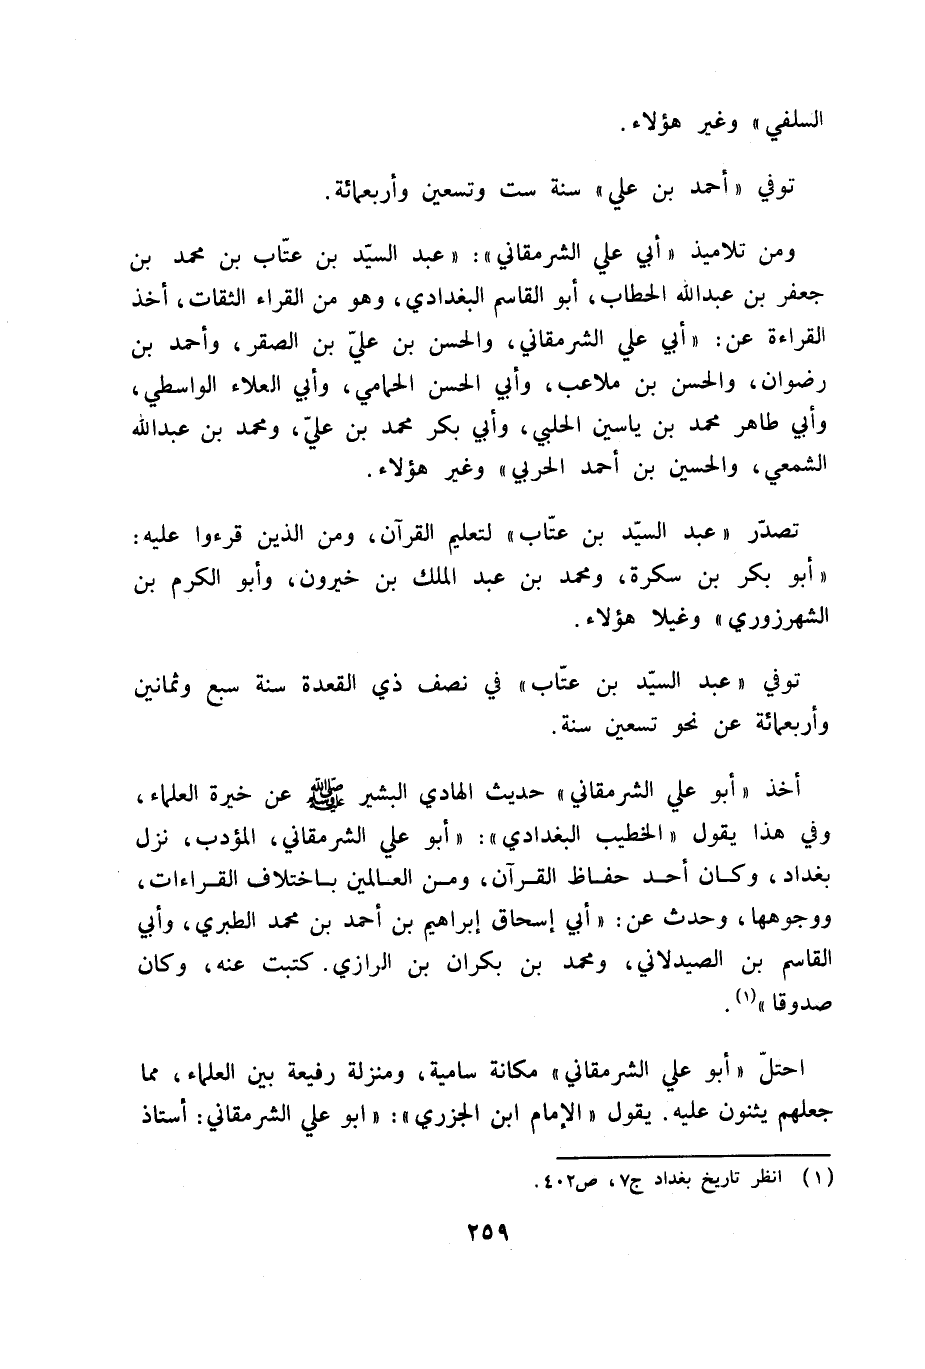 السلفي» وغير هؤلاء.
توفي «أحمد بن علي» سنة ست وتسعين وأربعمائة.
ومن تلاميذ «أبي علي الشرمقاني»: «عبد السيّد بن عتّاب بن محمد بن
جعفر بن عبدالله الحطاب، أبو القاسم البغدادي، وهو من القراء الثقات، أخذ
القراءة عن: «أبي علي الشرمقاني، والحسن بن عليّ بن الصقر، وأحمد بن
رضوان، والحسن بن ملاعب، وأبي الحسن الحمامي، وأبي العلاء الواسطي،
وأبي طاهر محمد بن ياسين الحلبي، وأبي بكر محمد بن عليّ، ومحمد بن عبدالله
الشمعي، والحسين بن أحمد الحربي» وغير هؤلاء.
تصدّر «عبد السيّد بن عتّاب» لتعليم القرآن، ومن الذين قرءوا عليه:
«أبو بكر بن سكرة، ومحمد بن عبد الملك بن خيرون، وأبو الكرم بن
الشهرزوري» وغيلا هؤلاء.
توفي «عبد السيّد بن عتّاب» في نصف ذي القعدة سنة سبع وثمانين
وأربعمائة عن نحو تسعين سنة.
أخذ «أبو علي الشرمقاني» حديث الهادي البشير ﷺ عن خيرة العلماء،
وفي هذا يقول «الخطيب البغدادي»: «أبو علي الشرمقاني، المؤدب، نزل
بغداد، وكان أحد حفاظ القرآن، ومن العالمين باختلاف القراءات،
ووجوهها، وحدث عن: «أبي إسحاق إبراهيم بن أحمد بن محمد الطبري، وأبي
القاسم بن الصيدلاني، ومحمد بن بكران بن الرازي. كتبت عنه، وكان
صدوقا»(١).
احتلّ «أبو علي الشرمقاني» مكانة سامية، ومنزلة رفيعة بين العلماء، مما
جعلهم يثنون عليه. يقول «الإمام ابن الجزري»: «ابو علي الشرمقاني: أستاذ
(١) انظر تاريخ بغداد ج٧، ص٤٠٢.
٢٥٩